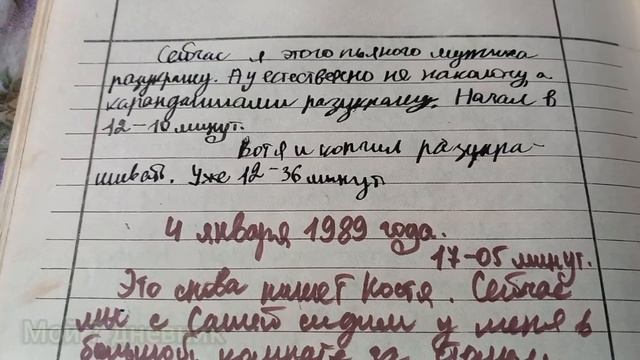 Сейчас я этого пьяного мужика
разукрашу. А у естественно не наколочу а
карандашами разукрашу. Начал в
12-10 минут.
Вот я и кончил разукра-
шивать. Уже 12-36 минут
4 января 1989 года.
17-05 минут.
Это снова пишет Костя. Сейчас
мы с Сашей сидим у меня в
большой комнате за
Мой дневник